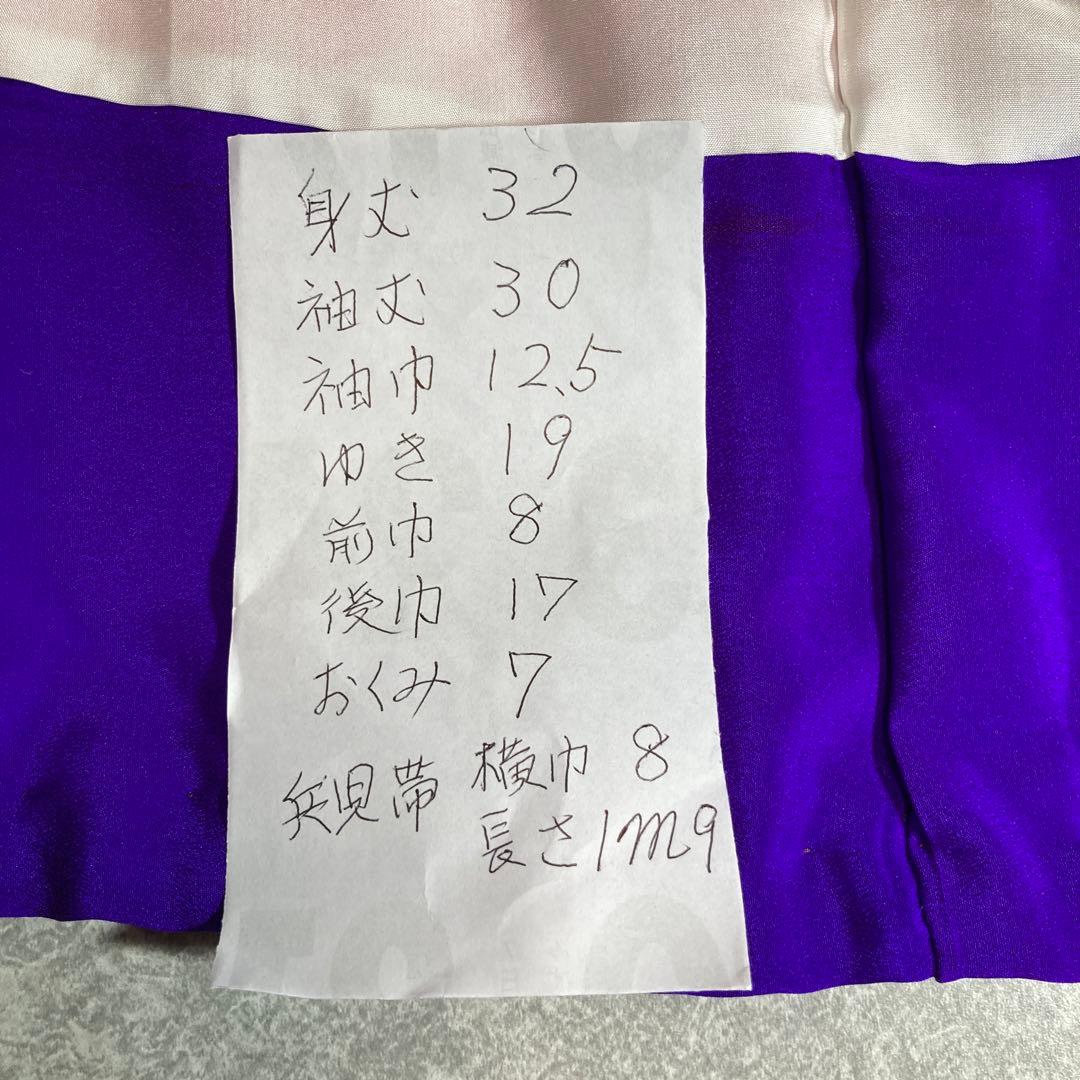 身丈 32
袖丈 30
袖巾 12.5
ゆき 19
前巾 8
後巾 17
おくみ 7
兵児帯 横巾 8
長さ 1m9